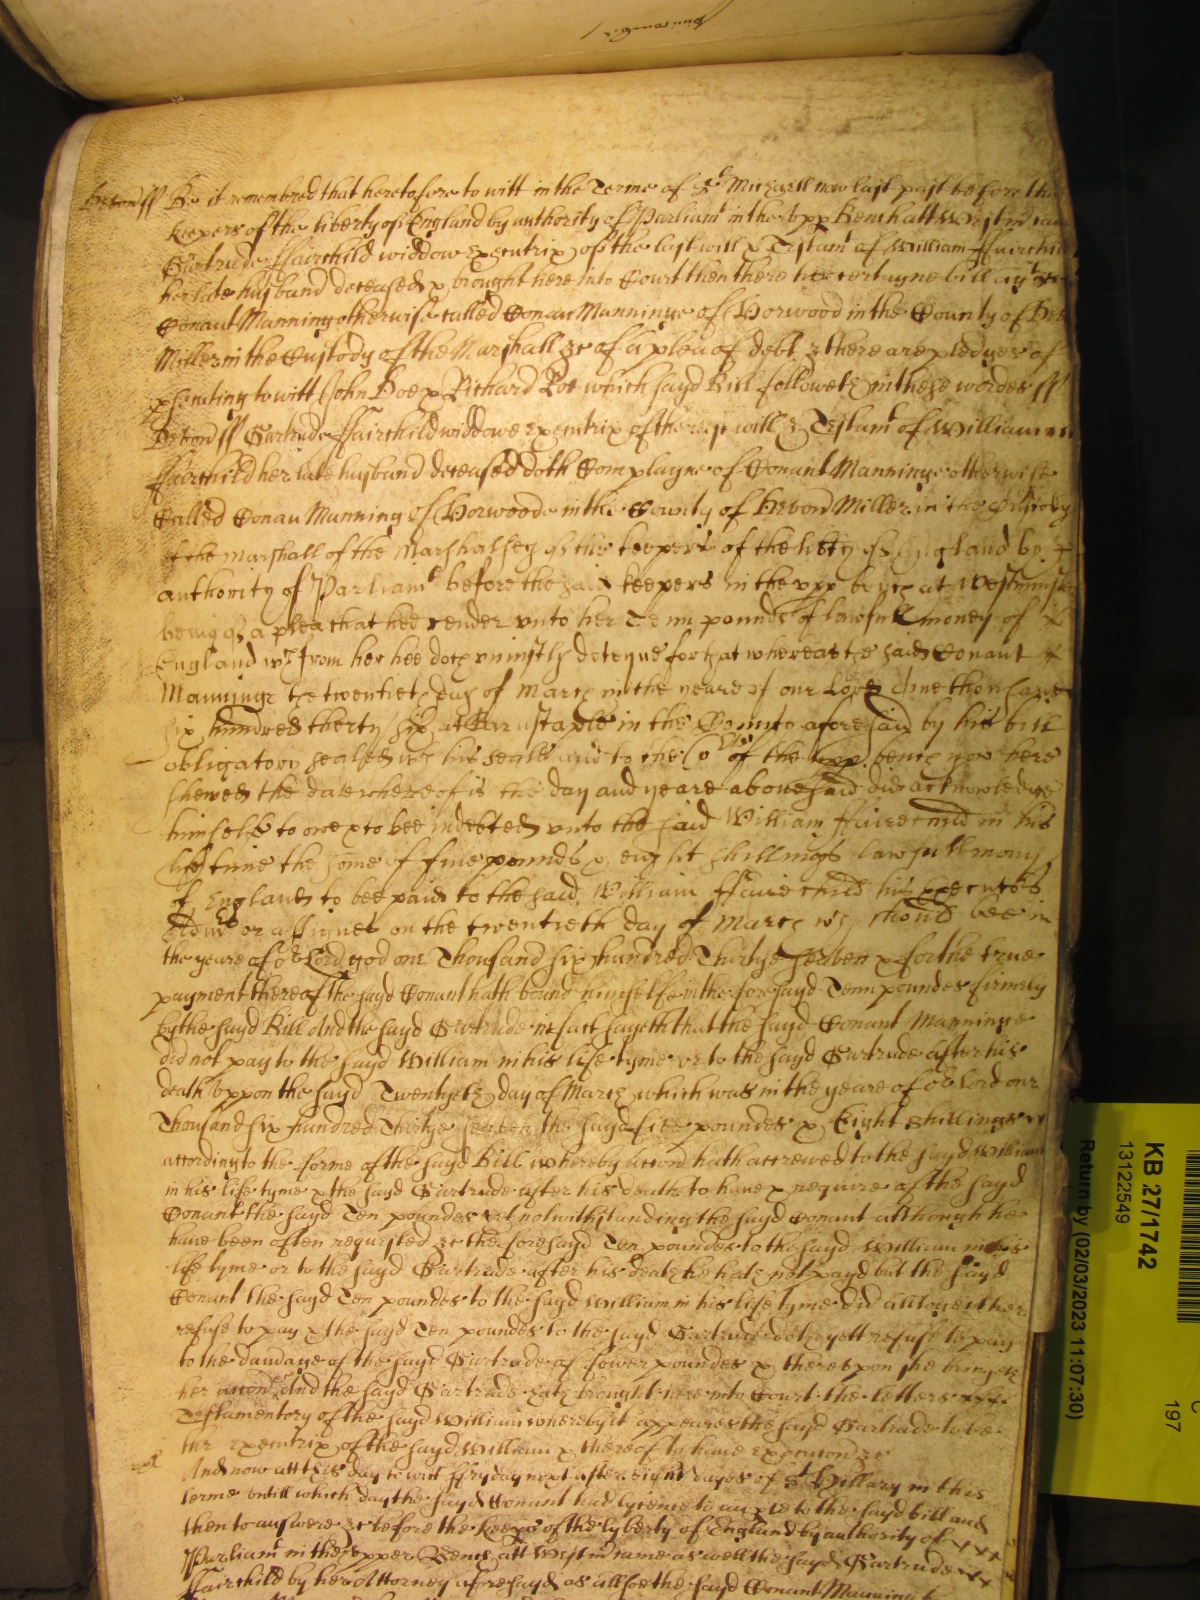 Devon ss Be it remembred that heretofore to witt in the Terme of St Michaell now last past before the
keepers of the liberty of England by authority of Parliamt in the vpp Bench att Westm came
Gartrude ffairchild widdow Executrix of the last will & Testamt of William ffairchild
her late husband deceased & brought here into Court then there her certayne bill agt
Conant Manninge otherwise called Conan Manninge of Horwood in the County of Devon
Miller in the Custody of the Marshall &c of a plea of debt & there are pledges of
prosecuting to witt John Doe & Richard Roe which sayd Bill followeth in these wordes ss
Devon ss Gartrude ffairchild widdowe Executrix of the last will & Testamt of William
ffairchild her late husband deceased doth Complayne of Conant Manninge otherwise
Called Conan Manning of Horwoode in the County of Devon Miller in the Custody
of the Marshall of the Marshalsey of the keepers of the libty of England by
authority of Parliamt before the said keepers in the vpp bench at Westminster
being of a plea that hee render vnto her Tenn pounds of lawfull money of
England wch from her hee doth vniustly deteyne for that whereas the said Conant
Manninge the twentieth day of March in the yeare of our Lord one thousand
six hundred therty six at Barnstaple in the County aforesaid by his bill
obligatory sealed wth his seale and to the Cort of the vpp bench now here
shewed the date whereof is the day and yeare abovesaid did acknowledge
himselfe to owe & to bee indebted vnto the said William ffairechild in his
life time the some of fiue pounds & eight shillings lawfull mony
of England to bee paid to the said William ffairechild his executors
Admrs or assignes on the twentieth day of March wch should bee in
the yeare of or Lord god one Thousand six hundred Thirtye seaven & for the true
payment thereof the sayd Conant hath bound himselfe in the foresayd Tenn poundes firmely
by the sayd Bill And the sayd Gartrude in fact sayeth that the sayd Conant Manninge
did not pay to the sayd William in his life tyme or to the sayd Gartrude after his
death vppon the sayd Twentyeth day of March which was in the yeare of or Lord one
Thousand six hundred Thirtye seaven the sayd five poundes & Eight shillings
according to the forme of the sayd Bill whereby accon hath accrewed to the sayd William
in his life tyme & the sayd Gartrude after his death to have & require of the sayd
Conant the sayd Ten poundes yet notwithstanding the sayd Conant although he
have been often requested &c the foresayd Ten poundes to the sayd William in his
life tyme or to the sayd Gartrude after his death he hath not payd but the sayd
Conant the sayd Ten poundes to the sayd William in his life tyme did alltogether
refuse to pay & the sayd Ten poundes to the sayd Gartrude doth yett refuse to pay
to the damage of the sayd Gartrude of fower poundes & thereupon she bringeth
her accon And the sayd Gartrude hath brought here into Court the letters
Testamentory of the sayd William whereby it appeares the sayd Gartrude to be
the Executrix of the sayd William & thereof to have Execucon &c
And now att this day to witt ffryday next after eight dayes of St Hillary in this
terme untill which day the sayd Conant had lycence to imparle to the sayd bill and
then to answere &c before the keeps of the lyberty of England by authority of
Parliamt in the upper Bench att Westm came as well the sayd Gartrude
ffairchild by her Attorney aforesayd as allsoe the sayd Conant Manning
KB 27/1742
13122549
Return by (02/03/2023 11:07:30)
197